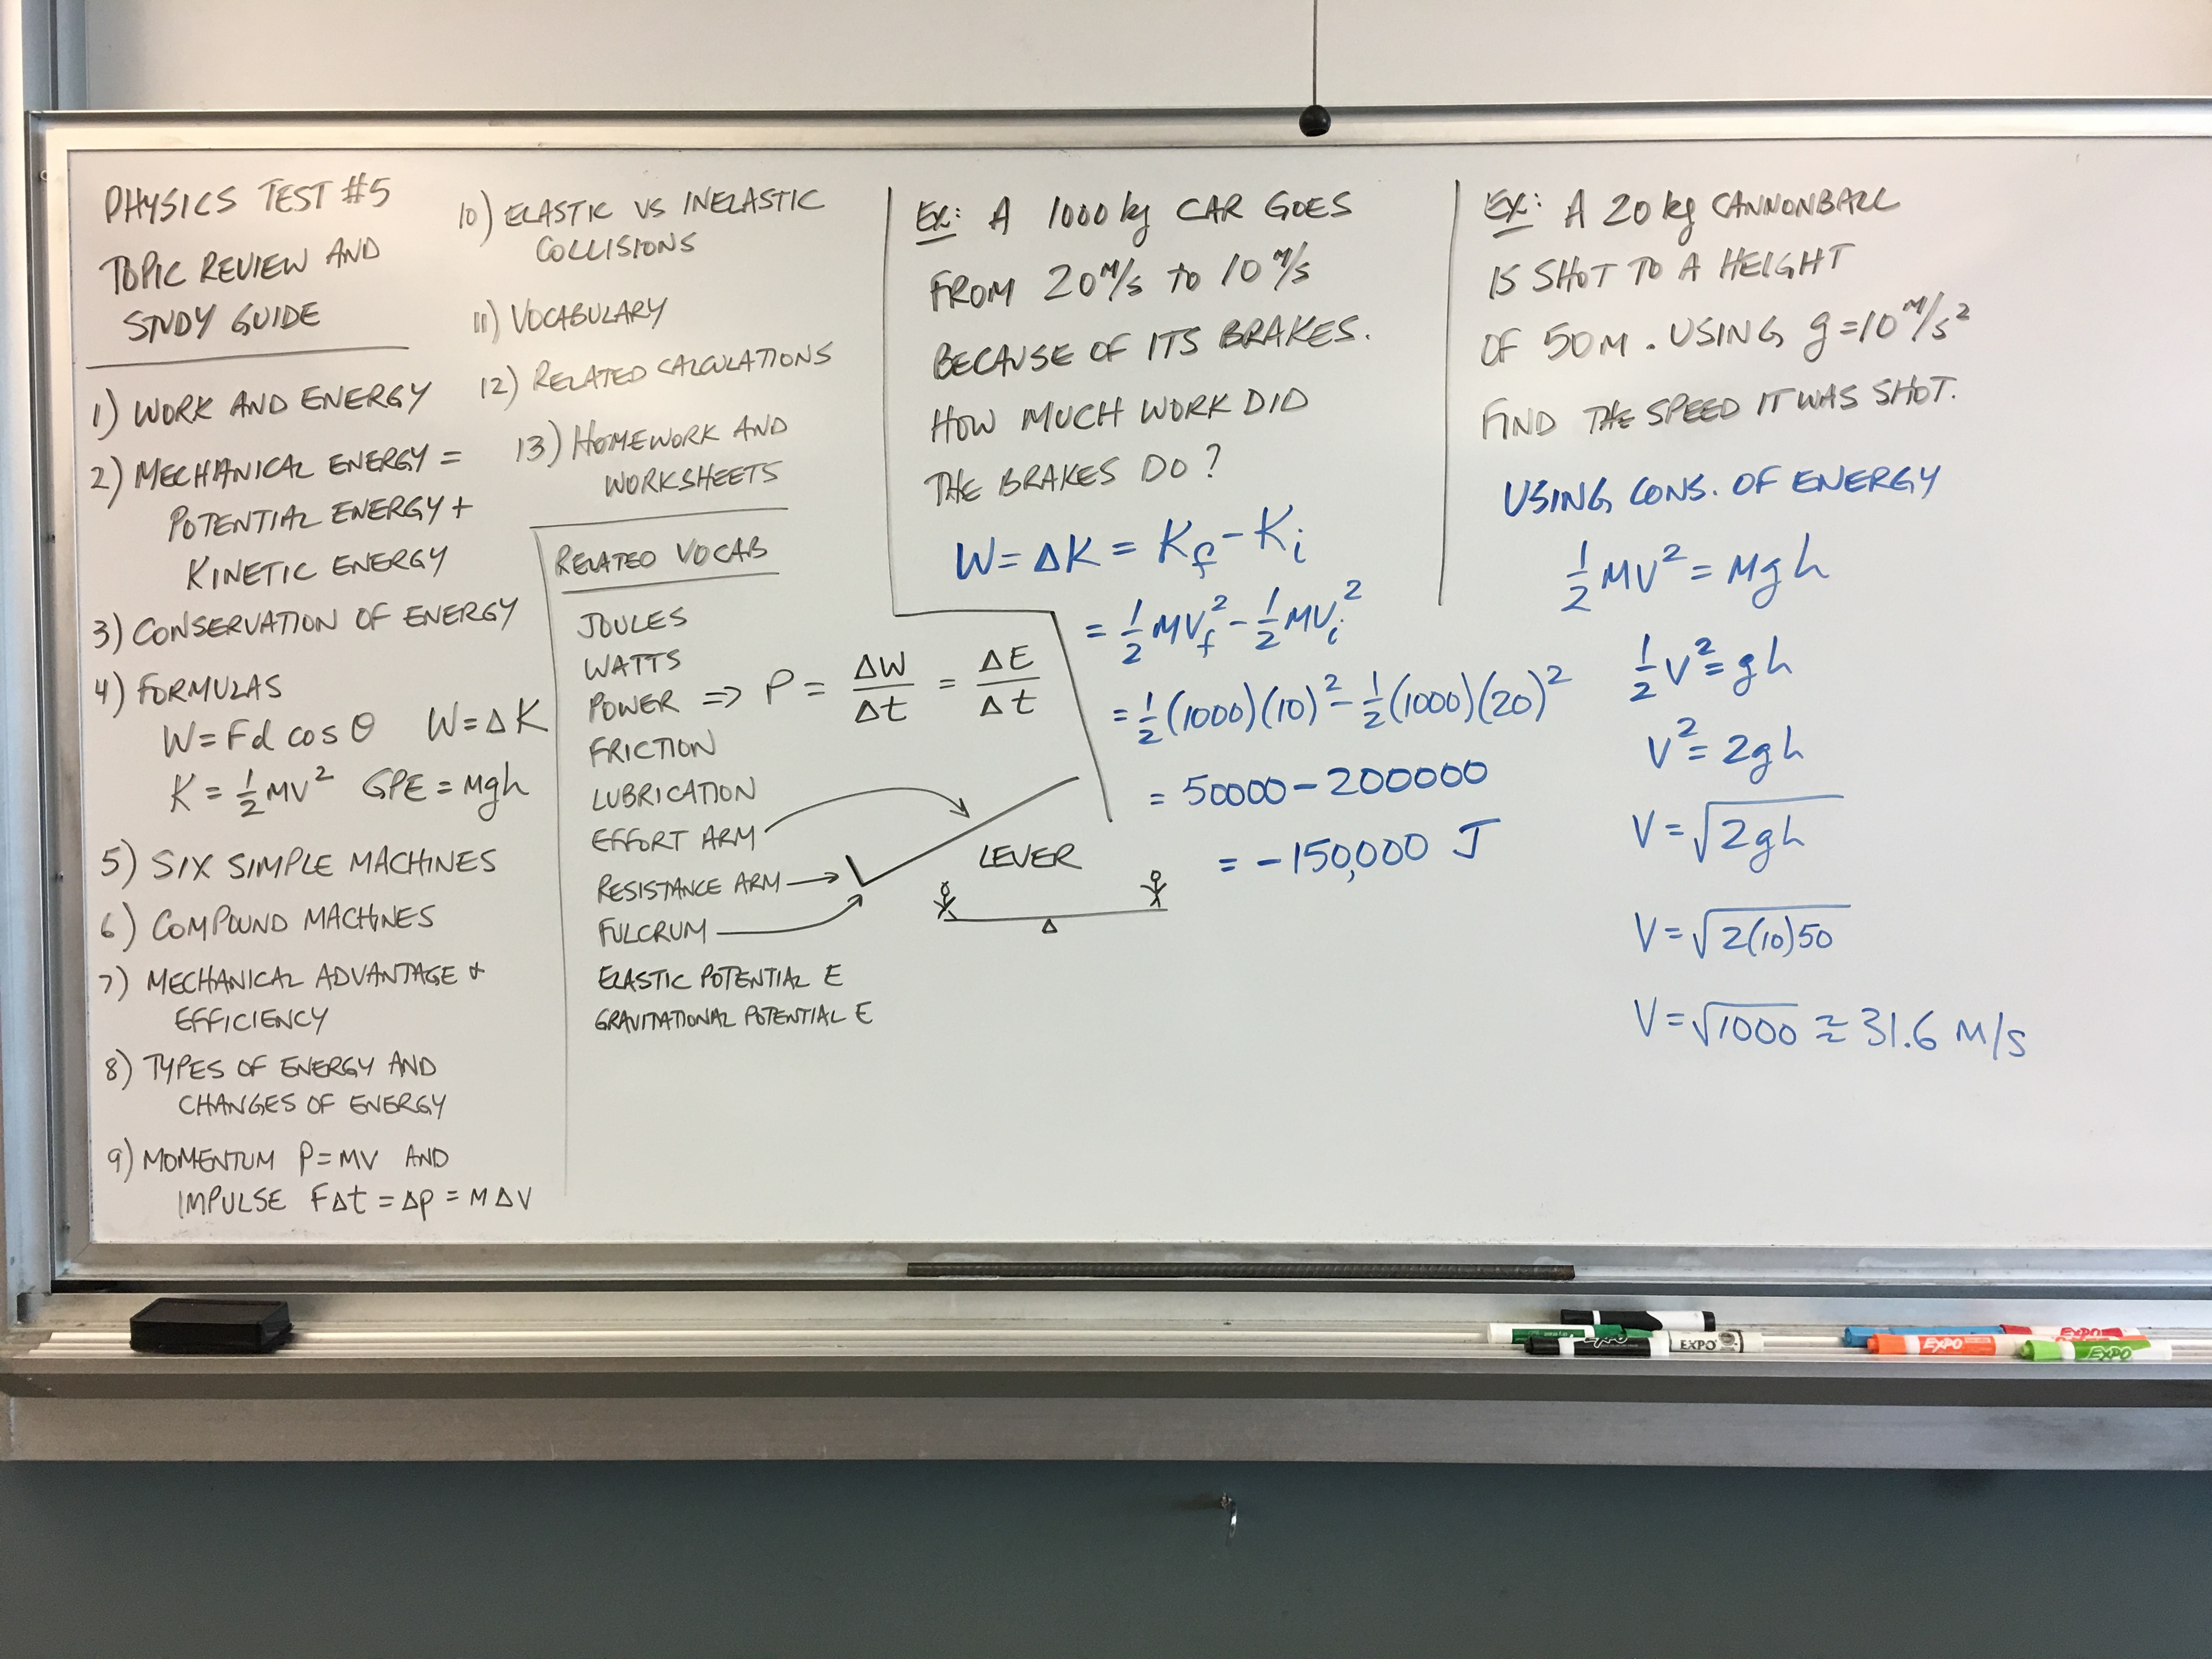 PHYSICS TEST #5
TOPIC REVIEW AND
STUDY GUIDE
1) WORK AND ENERGY
2) MECHANICAL ENERGY =
POTENTIAL ENERGY +
KINETIC ENERGY
3) CONSERVATION OF ENERGY
4) FORMULAS
W = Fd cos θ W = ΔK
K = 1/2 MV² GPE = Mgh
5) SIX SIMPLE MACHINES
6) COMPOUND MACHINES
7) MECHANICAL ADVANTAGE &
EFFICIENCY
8) TYPES OF ENERGY AND
CHANGES OF ENERGY
9) MOMENTUM P = MV AND
IMPULSE FΔt = Δp = MΔV
10) ELASTIC VS INELASTIC
COLLISIONS
11) VOCABULARY
12) RELATED CALCULATIONS
13) HOMEWORK AND
WORKSHEETS
RELATED VOCAB
JOULES
WATTS
POWER => P = ΔW/Δt = ΔE/Δt
FRICTION
LUBRICATION
EFFORT ARM
RESISTANCE ARM
FULCRUM
ELASTIC POTENTIAL E
GRAVITATIONAL POTENTIAL E
LEVER
EX: A 1000 kg CAR GOES
FROM 20 M/s TO 10 M/s
BECAUSE OF ITS BRAKES.
HOW MUCH WORK DID
THE BRAKES DO?
W = ΔK = Kf - Ki
= 1/2 MVf² - 1/2 MVi²
= 1/2 (1000)(10)² - 1/2 (1000)(20)²
= 50000 - 200000
= -150,000 J
EX: A 20 kg CANNONBALL
IS SHOT TO A HEIGHT
OF 50 M. USING g = 10 M/s²
FIND THE SPEED IT WAS SHOT.
USING CONS. OF ENERGY
1/2 MV² = Mgh
1/2 V² = gh
V² = 2gh
V = √2gh
V = √2(10)50
V = √1000 ≈ 31.6 M/s
EXPO
EXPO
EXPO
EXPO
EXPO